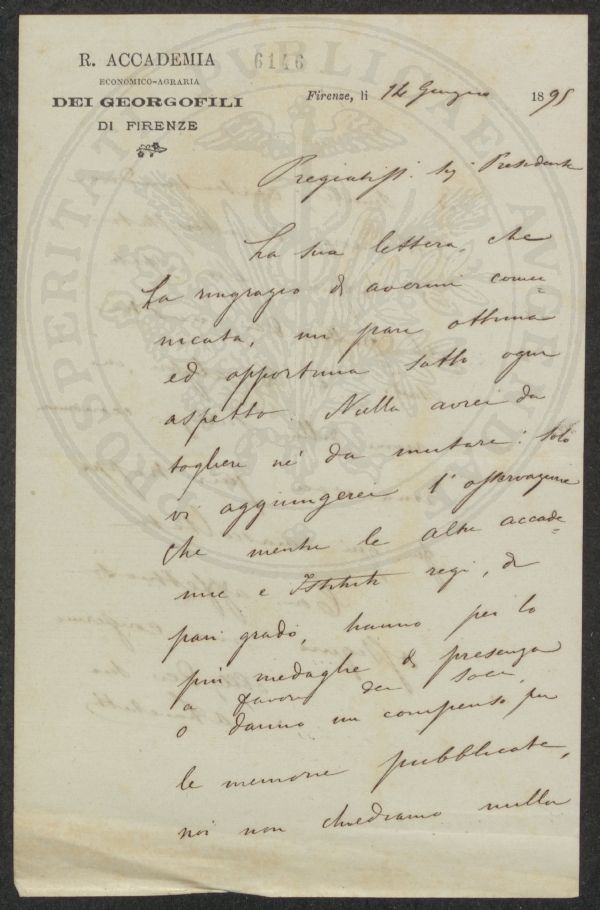 R. ACCADEMIA
ECONOMICO-AGRARIA
DEI GEORGOFILI
DI FIRENZE
6146
Firenze, li 12 Giugno 1895
Pregiatiss. Sig. Presidente
La sua lettera, che
La ringrazio di avermi comu-
nicata, mi pare ottima
ed opportuna sotto ogni
aspetto. Nulla avrei da
togliere nè da mutare: solo
vi aggiungerei l'osservazione
che mentre le altre accade-
mie e Istituti regi, di
pari grado, hanno per lo
più medaglie di presenza
a favore dei soci,
o danno un compenso per
le memorie pubblicate,
noi non chiediamo nulla
PROSPERITATI PUBLICAE AUGENDAE